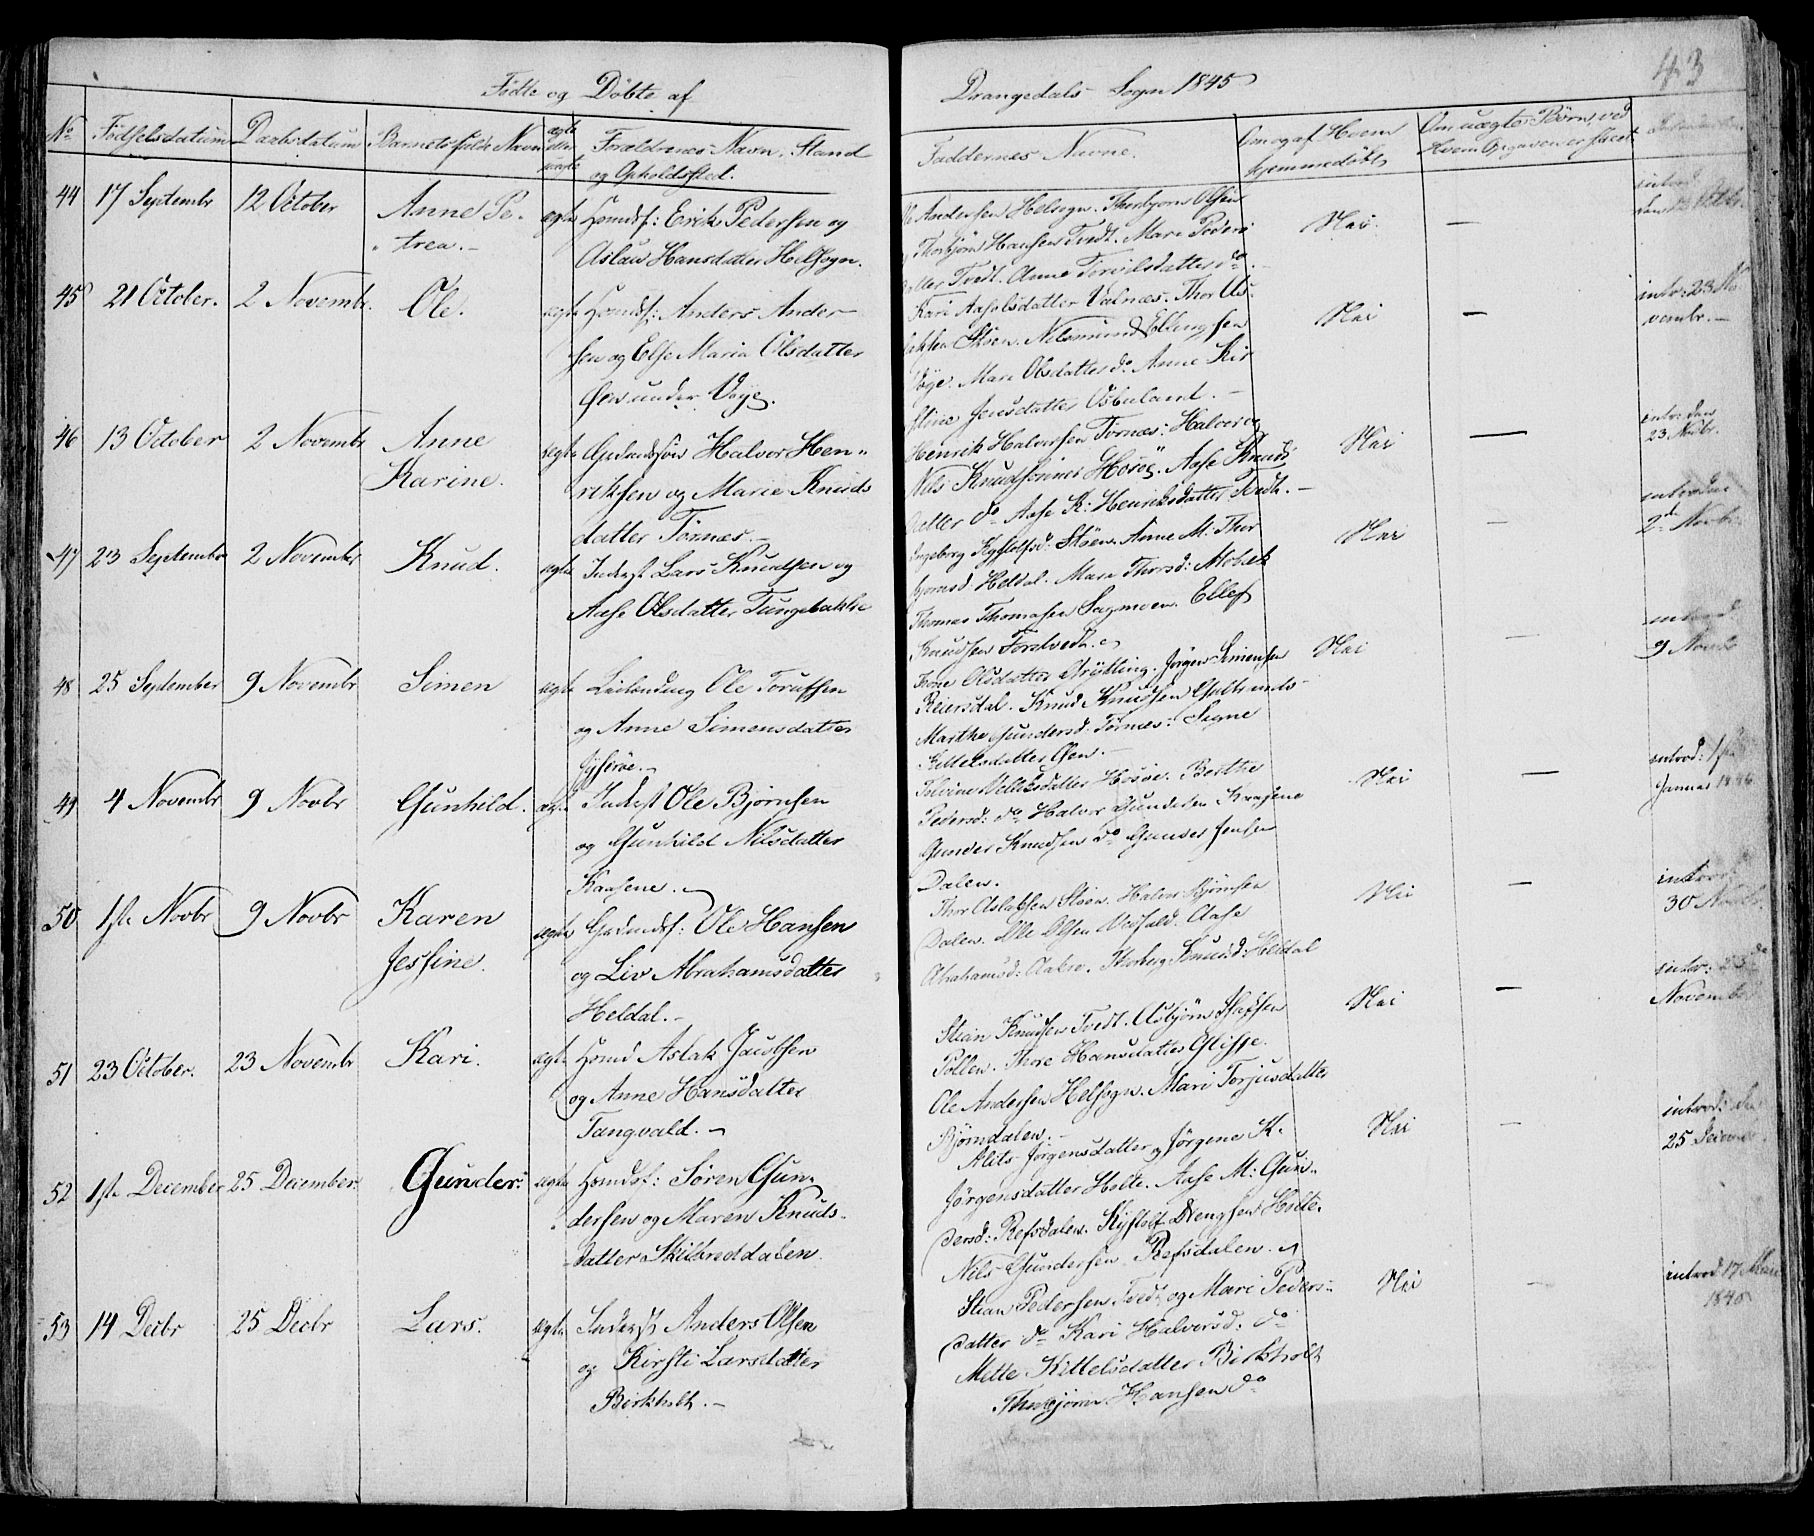 43
Fødte og Døbte af Drangedals Sogn 1845
No Fødselsdatum Daabsdatum Barnets fulde Navn ægte eller uægte Forældrenes Navn, Stand
og Opholdssted.
Faddernes Navne. Om og af Hvem
hjemmedøbt
Om uægte Børn, ved
Hvem Opgaven er skeet
44 17 Septembr 12 October Anne Pe-
trea.-
ægte Hsmdsf: Erik Pedersen og
Aslau Hansdatter Helsogn.
Andersen Helsogn. Thorbjørn Olsen
Thorbjørn Hansen Tvedt. Mari Peders
atter Tvedt. Anne Torvilsdatter do
Nei. —
introd
den 12 Octbr.
45 21 October. 2 Novembr. Ole.
ægte Hsmdsf: Anders Ander-
sen og Else Maria Olsdatter
Øen under Vøje.
Kari Aasolsdatter Valnæs. Thor As-
Støen. Nilsmund Ellingsen
Vøje. Mari Olsdatter do Anne Kir
stine Jensdatter Osbuland. -
Nei —
intr: 23 No
vembr. —
46 13 October 2 Novembr Anne
Karine.
ægte Gaardmdssøn Halvor Hen-
riksen og Marie Knuds
datter Tørnes.-
Henrik Halversen Tørnes: Halvor og
Nils Knudsønner Hosøe. Aase Knuds
datter do Aase K: Henriksdatter Tvedt. -
Nei —
intr: den
23 Novbr.
47 23 Septembr 2 Novembr Knud.
ægte Inderst Lars Knudsen og
Aase Olsdatter Tungebakke
Ingeborg Kystolfsd: Støen. Anne M: Thor
bjørnsd. Heldal. Mari Thorsd: Mobæk
Thomas Thomasen Sagmoen. Ellef
Knudsen Forstvedt.
Nei —
introd den
2d Novbr.
48 25 September 9 Novembr Simen
ægte Leilænding Ole Torufsen
og Anne Simensdatter
Tone Olsdatter Grytting. Jørgen Simensen
Reiersdal. Knud Knudsen
Marthe Gundersd: Tørnes: Signe
Kittelsdatter Øen.-
Nei —
introd
9 Novbr
49 4 Novembr 9 Novbr Gunhild.
ægte Inderst Ole Bjørnsen
og Gunhild Nilsdatter
Kaasene.
Hosøe. Berthe
Pedersd: do Halvor Gundersen Kaasene
Gunder Knudsen do Gunder Jensen
Dalen.
Nei —
introd: 1ste
Januar 1846
50 1ste Novbr 9 Novbr Karen
Jessine.
ægte Grdmdsf: Ole Hansen
og Liv Abrahamsdatter
Heldal.-
Thor Aslaksen Støen. Halvor Bjørnsen
Dalen. Ole Olsen Aase
Abrahamsd: Aakre. Thorberg Knudsd: Heldal
Nei —
introd
30 Novbr.
51 23 October. 23 Novembr Kari.
ægte Hsmd Aslak Jacobsen
og Anne Hansdatter
Tangvald. -
Stian Knudsen Tvedt. Asbjørn
Pollen. Thore Hansdatter
Ole Andersen Helsogn. Mari Torjusdatter
Bjørndalen. -
Nei —
intr: 23de
November
52 1ste December 25 December. Gunder.
ægte Hsmdsf: Søren Gun-
dersen og Maren Knuds-
datter Skibreddalen.
Alits Jørgensdatter og Jørgene K.
Jørgensdatter Holte. Aase M: Gun-
dersd: Refsdalen. Kystolf Drengsen Holte.
Nils Gundersen Refsdalen.
Nei —
introd: den
25 Decembr.
53 14 Decbr 25 Decbr Lars.
ægte Inderst Anders Olsen
og Kirsti Larsdatter
Birkholt. -
Stian Pedersen Tvedt og Mari Peders-
datter do Kari Halversd: do
Mette Kittelsdatter Birkholt
Thorbjørn Hansen do
Nei —
introd 17 Mai
1846